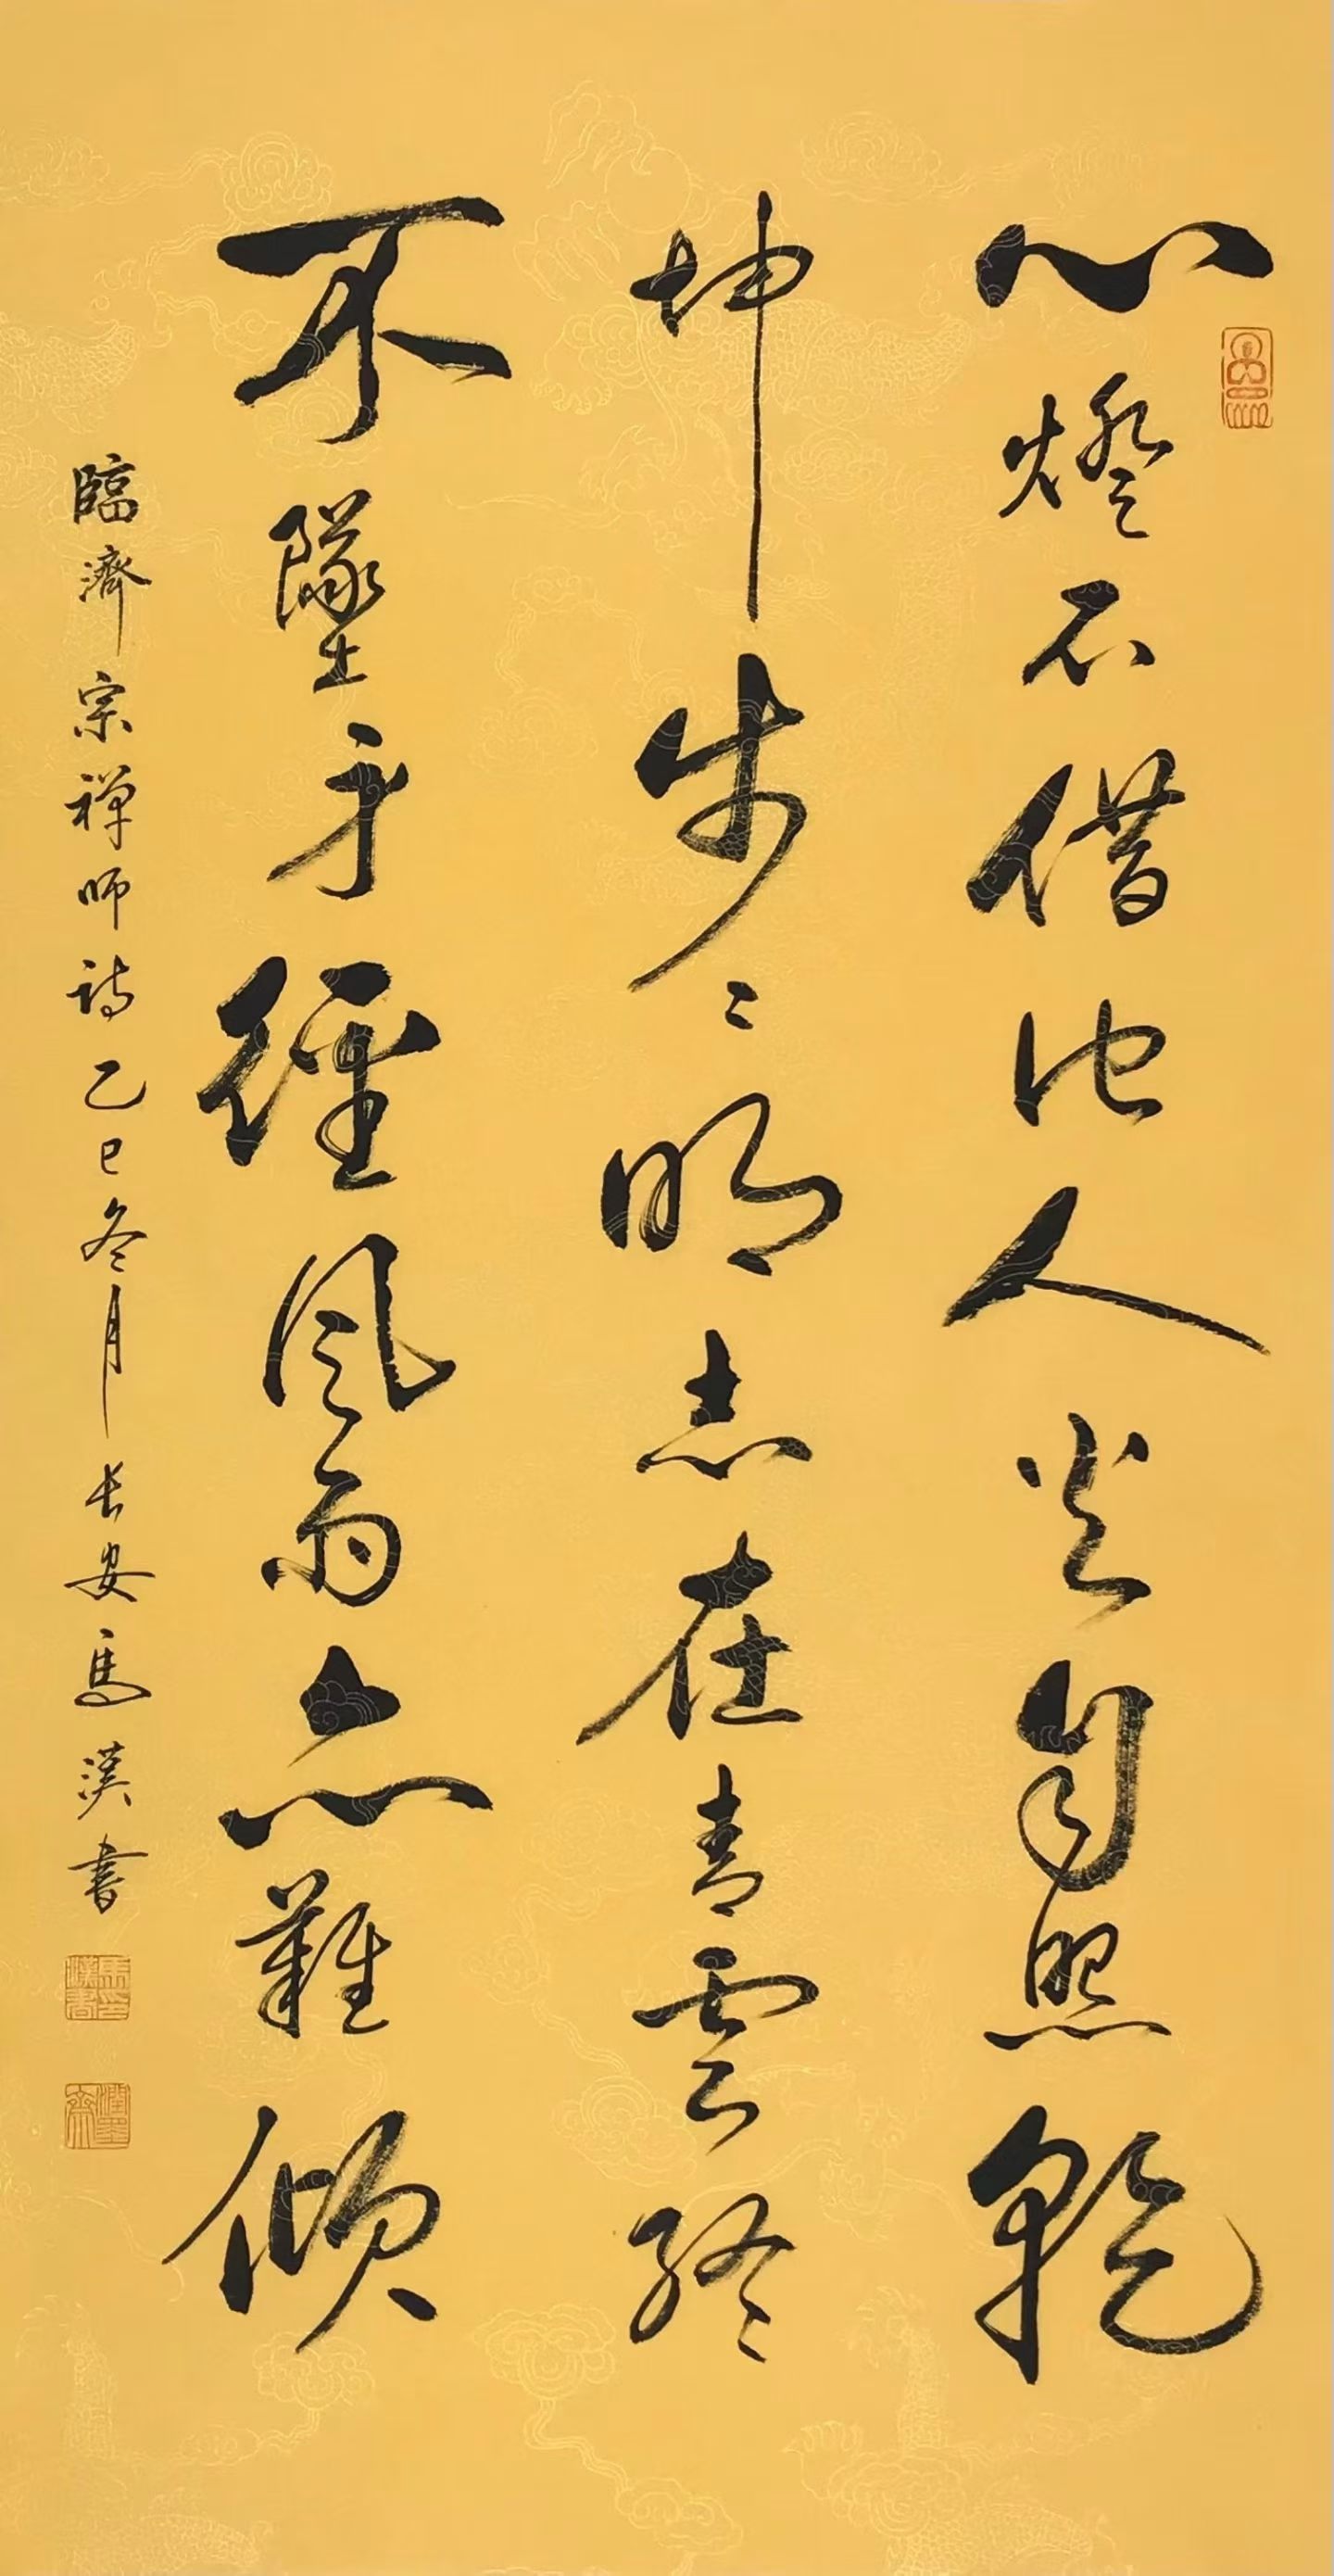 心燈不借他人光自照乾
坤步々明志在青雲終
不墜身經風雨亦難傾
臨濟宗禅師詩乙巳冬月長安馬漢書